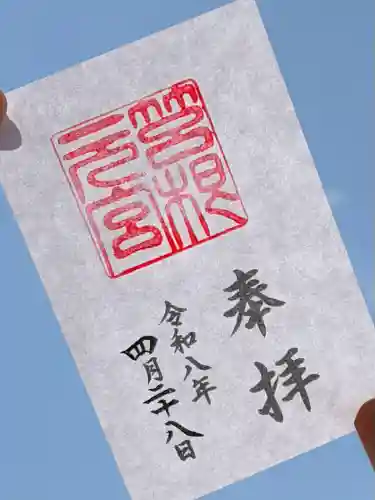 奉拝
箱根
元宮
令和八年
四月二十八日